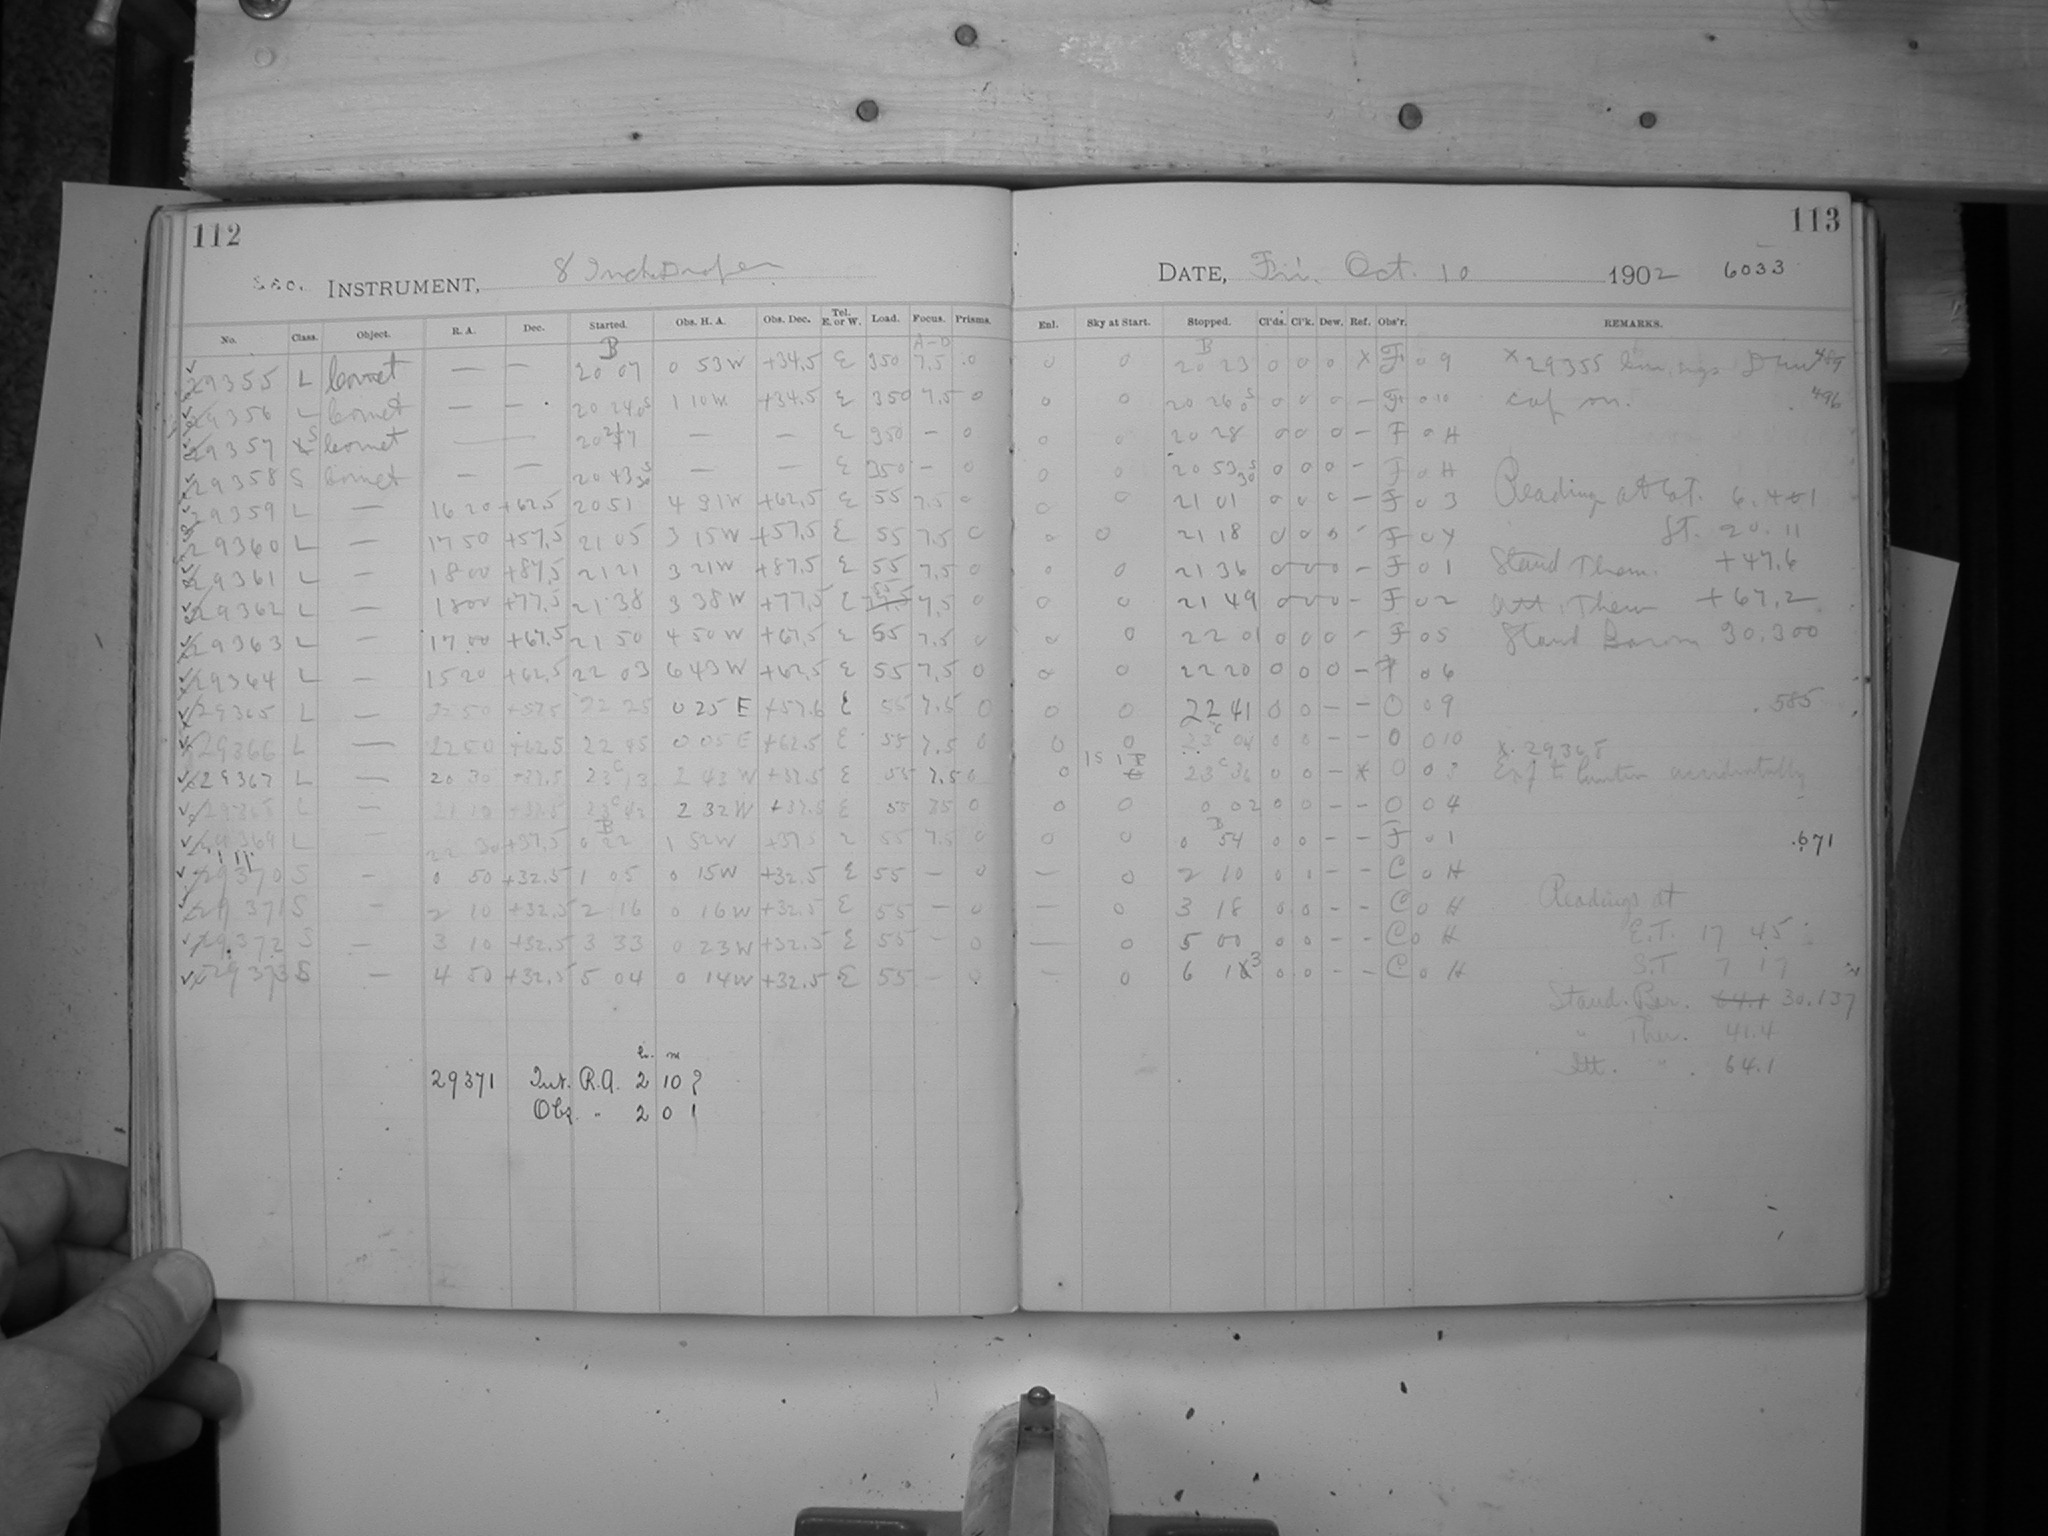 112
INSTRUMENT, 8 Inch Draper
No. Class. Object. R. A. Dec. Started. Obs. H. A. Obs. Dec. Tel. E. or W. Load. Focus. Prisms.
B A-D
29355 L Comet — — 20 07 0 53 W +34.5 E 350 7.5 0
29356 L Comet — — 20 24 05 1 10 W +34.5 E 350 7.5 0
29357 S Comet — 20 27 — — E 350 — 0
29358 S Comet — — 20 43 — — E 350 — 0
29359 L — 16 20 +62.5 20 51 4 31 W +62.5 E 55 7.5 0
29360 L — 17 50 +57.5 21 05 3 15 W +57.5 E 55 7.5 0
29361 L — 18 00 +87.5 21 21 3 21 W +87.5 E 55 7.5 0
29362 L — 18 00 +77.5 21 38 3 38 W +77.5 E 55 7.5 0
29363 L — 17 00 +67.5 21 50 4 50 W +67.5 E 55 7.5 0
29364 L — 15 20 +62.5 22 03 6 43 W +62.5 E 55 7.5 0
29365 L — 22 50 +57.5 22 25 0 25 E +57.6 E 55 7.5 0
29366 L — 22 50 +62.5 22 45 0 05 E +62.5 E 55 7.5 0
29367 L — 20 30 +37.5 23 C 13 2 43 W +37.5 E 55 7.5 0
29368 L — 21 10 +37.5 23 C 42 2 32 W +37.5 E 55 7.5 0
B
29369 L — 22 30 +37.5 0 22 1 52 W +37.5 E 55 7.5 0
29370 S — 0 50 +32.5 1 05 0 15 W +32.5 E 55 — 0
29371 S — 2 10 +32.5 2 16 0 16 W +32.5 E 55 — 0
29372 S — 3 10 +32.5 3 33 0 23 W +32.5 E 55 — 0
29373 S — 4 50 +32.5 5 04 0 14 W +32.5 E 55 — 0
h. m
29371 Int. R.A. 2 10 ?
Obs. " 2 0 !
113
DATE, Fri. Oct. 10 1902 6033
Enl. Sky at Start. Stopped. Cl'ds. Cl'k. Dew. Ref. Obs'r. REMARKS.
B
0 0 20 23 0 0 0 X F 0 9 X 29355 489
0 0 20 26 05 0 0 0 — F 0 10 cap on. 496
0 0 20 28 0 0 0 — F 0 H
0 0 20 53 0 0 0 — F 0 H
0 0 21 01 0 0 0 — F 0 3 Reading at
0 0 21 18 0 0 0 — F 0 Y St. 20.11
0 0 21 36 0 0 0 — F 0 1 Stand Them. +47.6
0 0 21 49 0 0 0 — F 0 2 Att. Them +67.2
0 0 22 01 0 0 0 — F 0 5 Stand Barom 30.300
0 0 22 20 0 0 0 — F 0 6
0 0 22 41 0 0 — — O 0 9 .585
0 0 23 C 04 0 0 — — O 0 10 X. 29368
0 23 C 36 0 0 — X O 0 3 accidentally
0 0 0 02 0 0 — — O 0 4
B
0 0 0 54 0 0 — — F 0 1 .671
— 0 2 10 0 1 — — C 0 H
— 0 3 18 0 0 — — C 0 H Readings at
— 0 5 00 0 0 — — C 0 H E.T. 17 45
— 0 6 13 0 0 — — C 0 H S.T 7 17
Stand. Bar. 64.1 30.137
" Ther. 41.4
Att. " 64.1